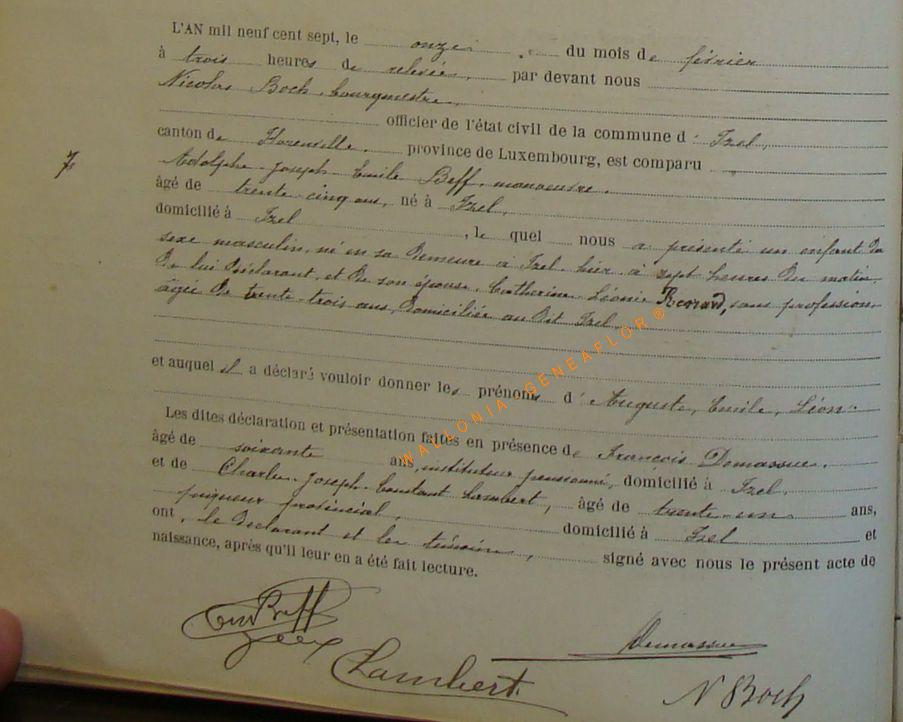 L'AN mil neuf cent sept, le onze du mois de février
à trois heures de relevée, par devant nous
Nicolas Boch, bourgmestre,
officier de l'état civil de la commune d'Izel,
canton de Florenville, province de Luxembourg, est comparu
7
Adolphe Joseph Emile Beff, manœuvre,
âgé de trente cinq ans, né à Izel,
domicilié à Izel, le quel nous a présenté un enfant du
sexe masculin, né en sa demeure à Izel, hier, à sept heures du matin,
de lui déclarant, et de son épouse, Catherine Léonie Renard, sans profession,
âgée de trente-trois ans, domiciliée au dit Izel
et auquel il a déclaré vouloir donner les prénoms d'Auguste, Emile, Léon.
Les dites déclaration et présentation faites en présence de François Demassue,
âgé de soixante ans, instituteur pensionné, domicilié à Izel,
et de Charles Joseph Constant Lambert, âgé de trente un ans,
piqueur provincial, domicilié à Izel et
ont, le déclarant et les témoins, signé avec nous le présent acte de
naissance, après qu'il leur en a été fait lecture.
Beff
Demassue
Lambert
N Boch
WALLONIA GENEAFLOR®